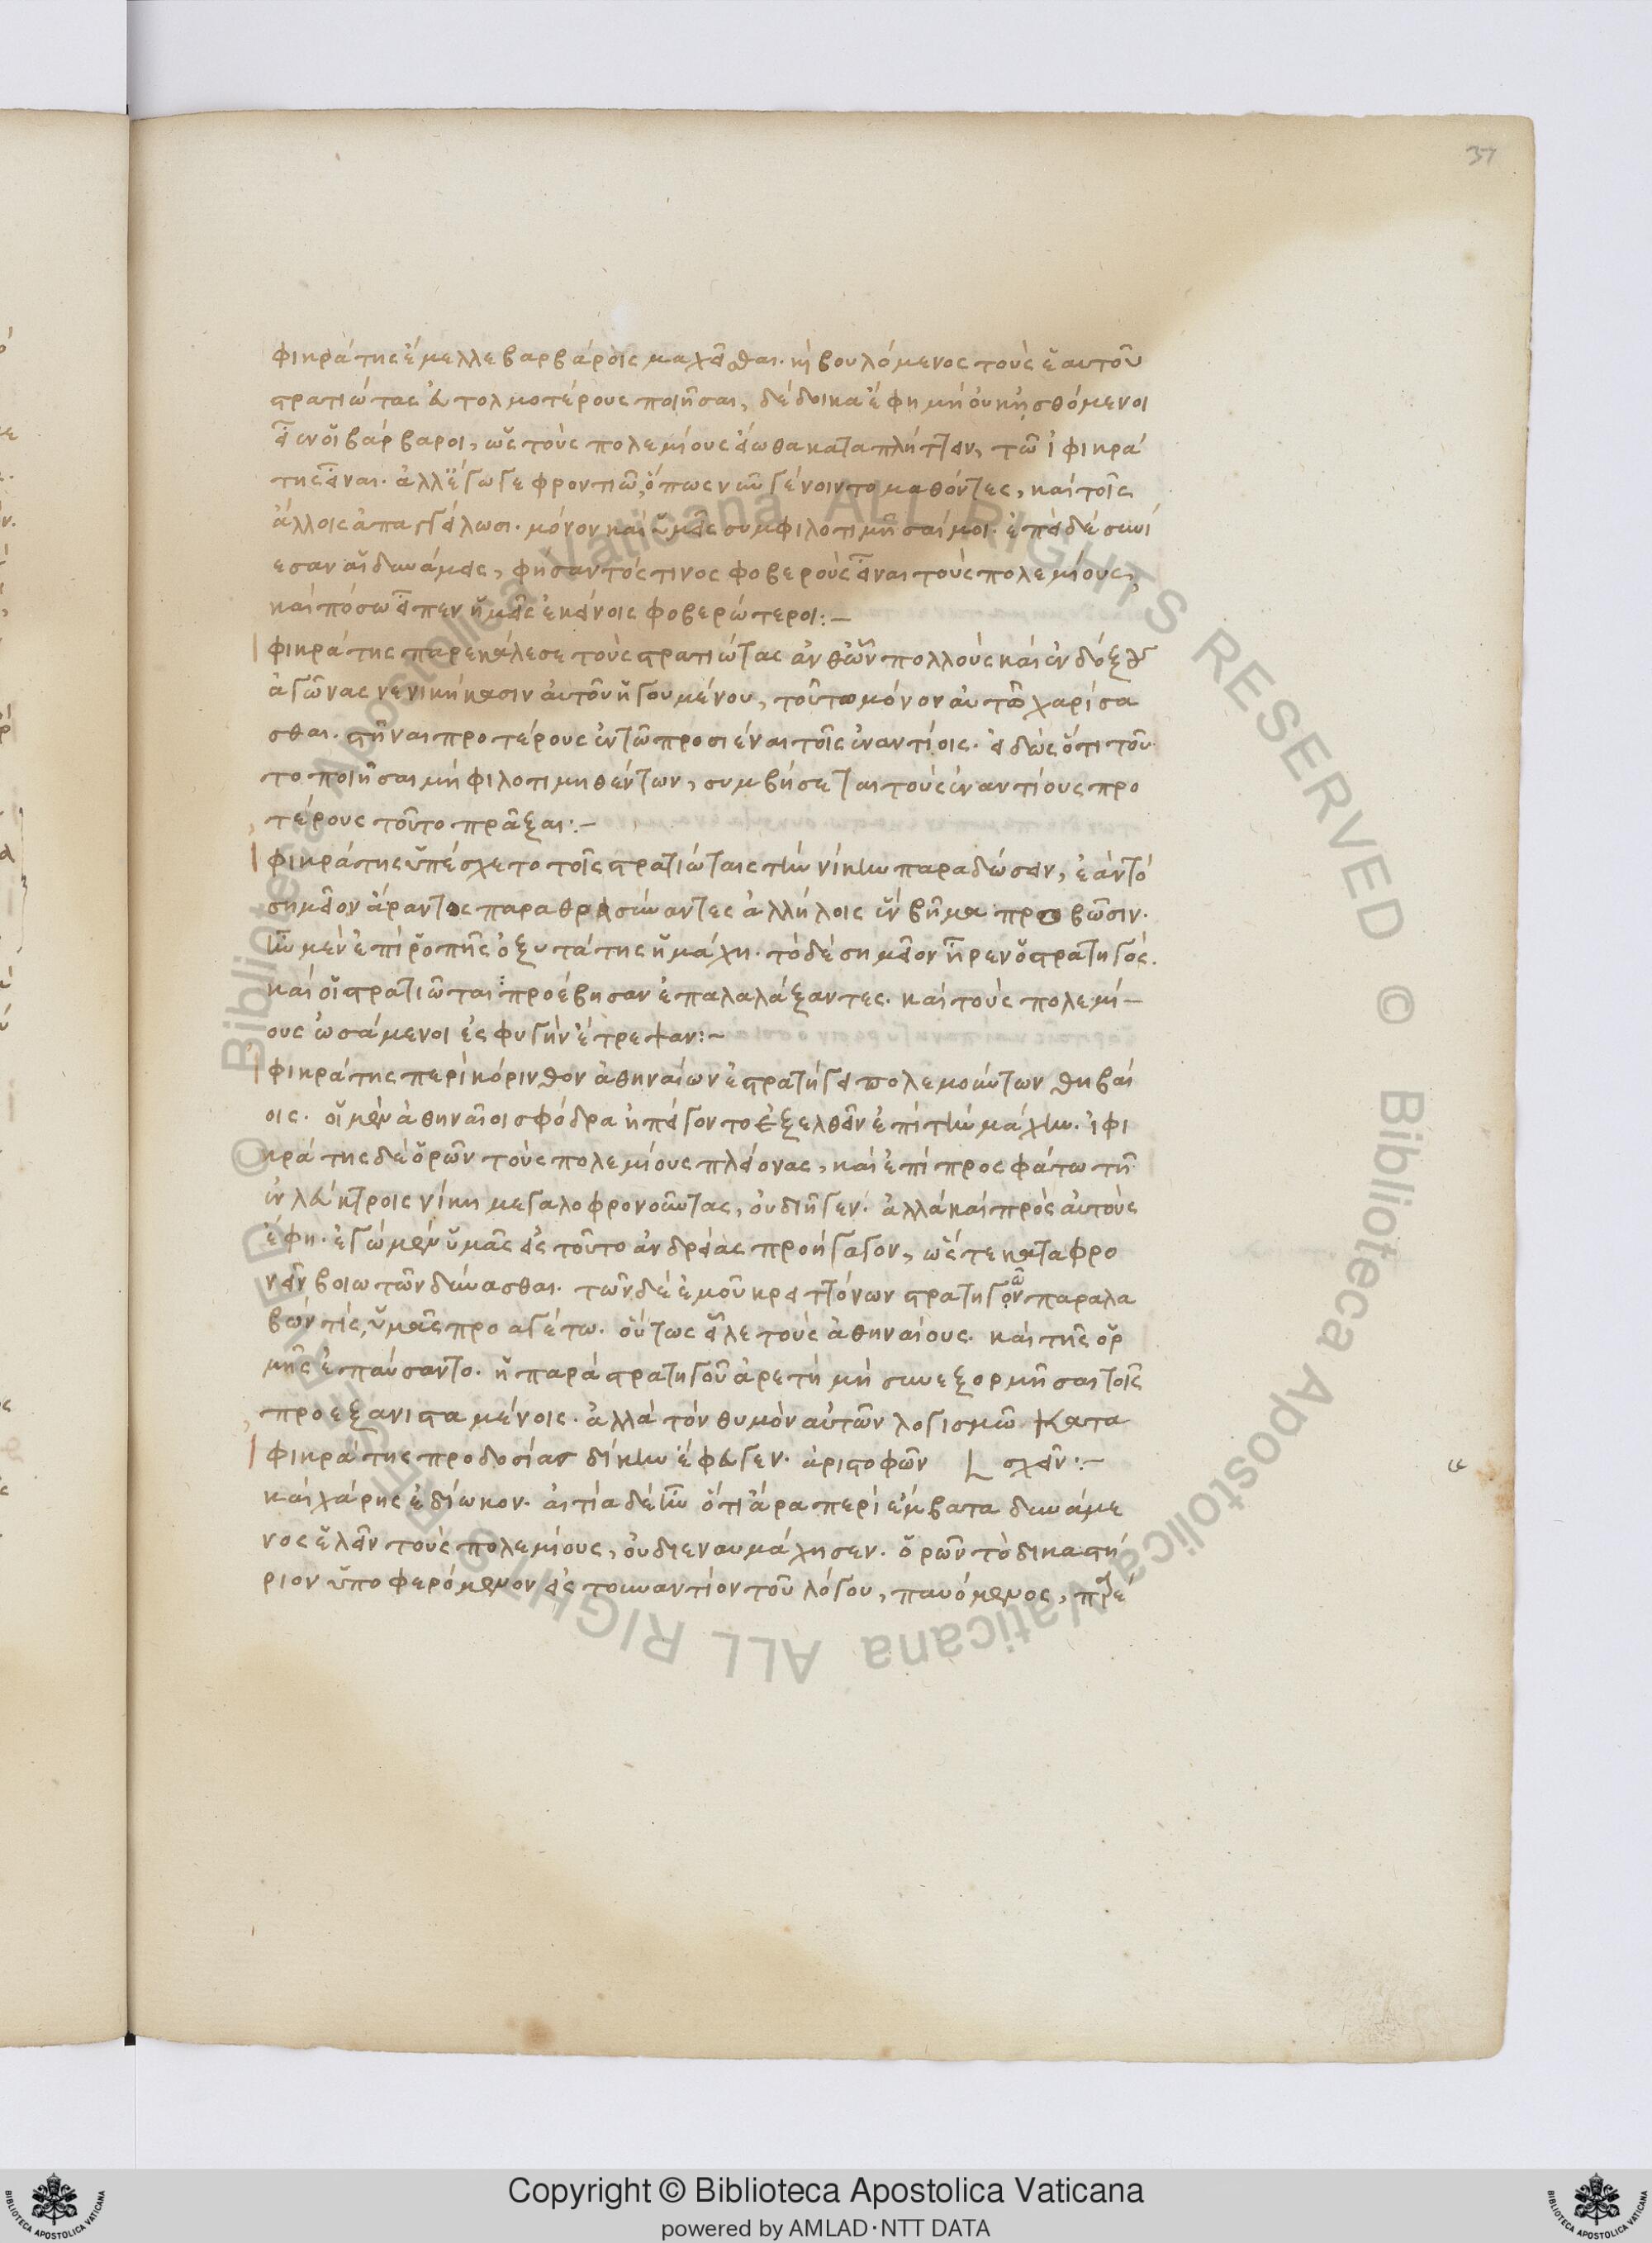 37
φικράτης ἔμελλε βαρβάροις μαχεῖσθαι. καὶ βουλόμενος τοὺς ἑαυτοῦ
στρατιώτας εὐτολμοτέρους ποιῆσαι, δέδοικα ἔφη μὴ οὐκ ᾐσθόμενοι
εἶεν οἱ βάρβαροι, ὡς τοὺς πολεμίους εἴωθα καταπλήττειν, τῶ ἰφικρά
της εἶναι. ἀλλ' ἔγωγε φροντιῶ, ὅπως νῦν γένοιντο μαθόντες, καὶ τοῖς
ἄλλοις ἀπαγγείλωσι. μόνον καὶ ὑμᾶς συμφιλοτιμῆσαί μοι. ἐπεὶ δὲ συνί
εσαν αἱ δυνάμεις, φήσαντός τινος φοβεροὺς εἶναι τοὺς πολεμίους,
καὶ πόσω εἶπεν ἡμεῖς ἐκείνοις φοβερώτεροι:–
φικράτης παρεκάλεσε τοὺς στρατιώτας ἀνθ' ὧν πολλοὺς καὶ ἐνδόξους
ἀγῶνας νενικήκασιν αὐτοῦ ἡγουμένου, τοῦτο μόνον αὐτῶ χαρίσα
σθαι. στῆναι προτέρους ἐν τῶ προσιέναι τοῖς ἐναντίοις. εἰδὼς ὅτι τοῦ
το ποιῆσαι μὴ φιλοτιμηθέντων, συμβήσεται τοὺς ἐναντίους προ
τέρους τοῦτο πρᾶξαι:–
φικράτης ὑπέσχετο τοῖς στρατιώταις τὴν νίκην παραδώσειν, ἐὰν τὸ
σημεῖον ἄραντος παραθρασύναντες ἀλλήλοις ἓν βῆμα προβῶσιν.
ἦν μὲν ἐπὶ ῥοπῆς ὀξυτάτης ἡ μάχη. τὸ δὲ σημεῖον ἦρεν ὁ στρατηγός.
καὶ οἱ στρατιῶται προέβησαν ἐπαλαλάξαντες. καὶ τοὺς πολεμί–
ους ὠσάμενοι ἐς φυγὴν ἔτρεψαν:–
φικράτης περὶ κόρινθον ἀθηναίων ἐστρατήγει πολεμούντων θηβαί
οις. οἱ μὲν ἀθηναῖοι σφόδρα ἠπείγοντο ἐξελθεῖν ἐπὶ τὴν μάχην. ἰφι
κράτης δὲ ὁρῶν τοὺς πολεμίους πλείονας, καὶ ἐπὶ προσφάτω τῆ
ἐν λεύκτροις νίκη μεγαλοφρονοῦντας, οὐδ' ἦγεν. ἀλλὰ καὶ πρὸς αὐτοὺς
ἔφη. ἐγὼ μὲν ὑμᾶς εἰς τοῦτο ἀνδρείας προήγαγον, ὥστε καταφρο
νεῖν βοιωτῶν δύνασθαι. τῶν δὲ ἐμοῦ κρειττόνων στρατηγῶν παραλα
βών τις, ὑμᾶς προαγέτω. οὕτως εἷλε τοὺς ἀθηναίους. καὶ τῆς ὁρ
μῆς ἐπαύσαντο. ἡ παρὰ στρατηγοῦ ἀρετὴ μὴ συνεξορμῆσαι τοῖς
προεξανισταμένοις. ἀλλὰ τὸν θυμὸν αὐτῶν λογισμῶ κατα
φικράτης προδοσίας δίκην ἔφευγεν. ἀριστοφῶν L σχεῖν:–
καὶ χάρης ἐδίωκον. αἰτία δὲ ἦν ὅτι ἄρα περὶ ἔμβατα δυνάμε
νος ἑλεῖν τοὺς πολεμίους, οὐδ' ἐναυμάχησεν. ὁρῶν τὸ δικαστή
ριον ὑποφερόμενον εἰς τοὐναντίον τοῦ λόγου, παυόμενος, πα
Copyright © Biblioteca Apostolica Vaticana
powered by AMLAD·NTT DATA